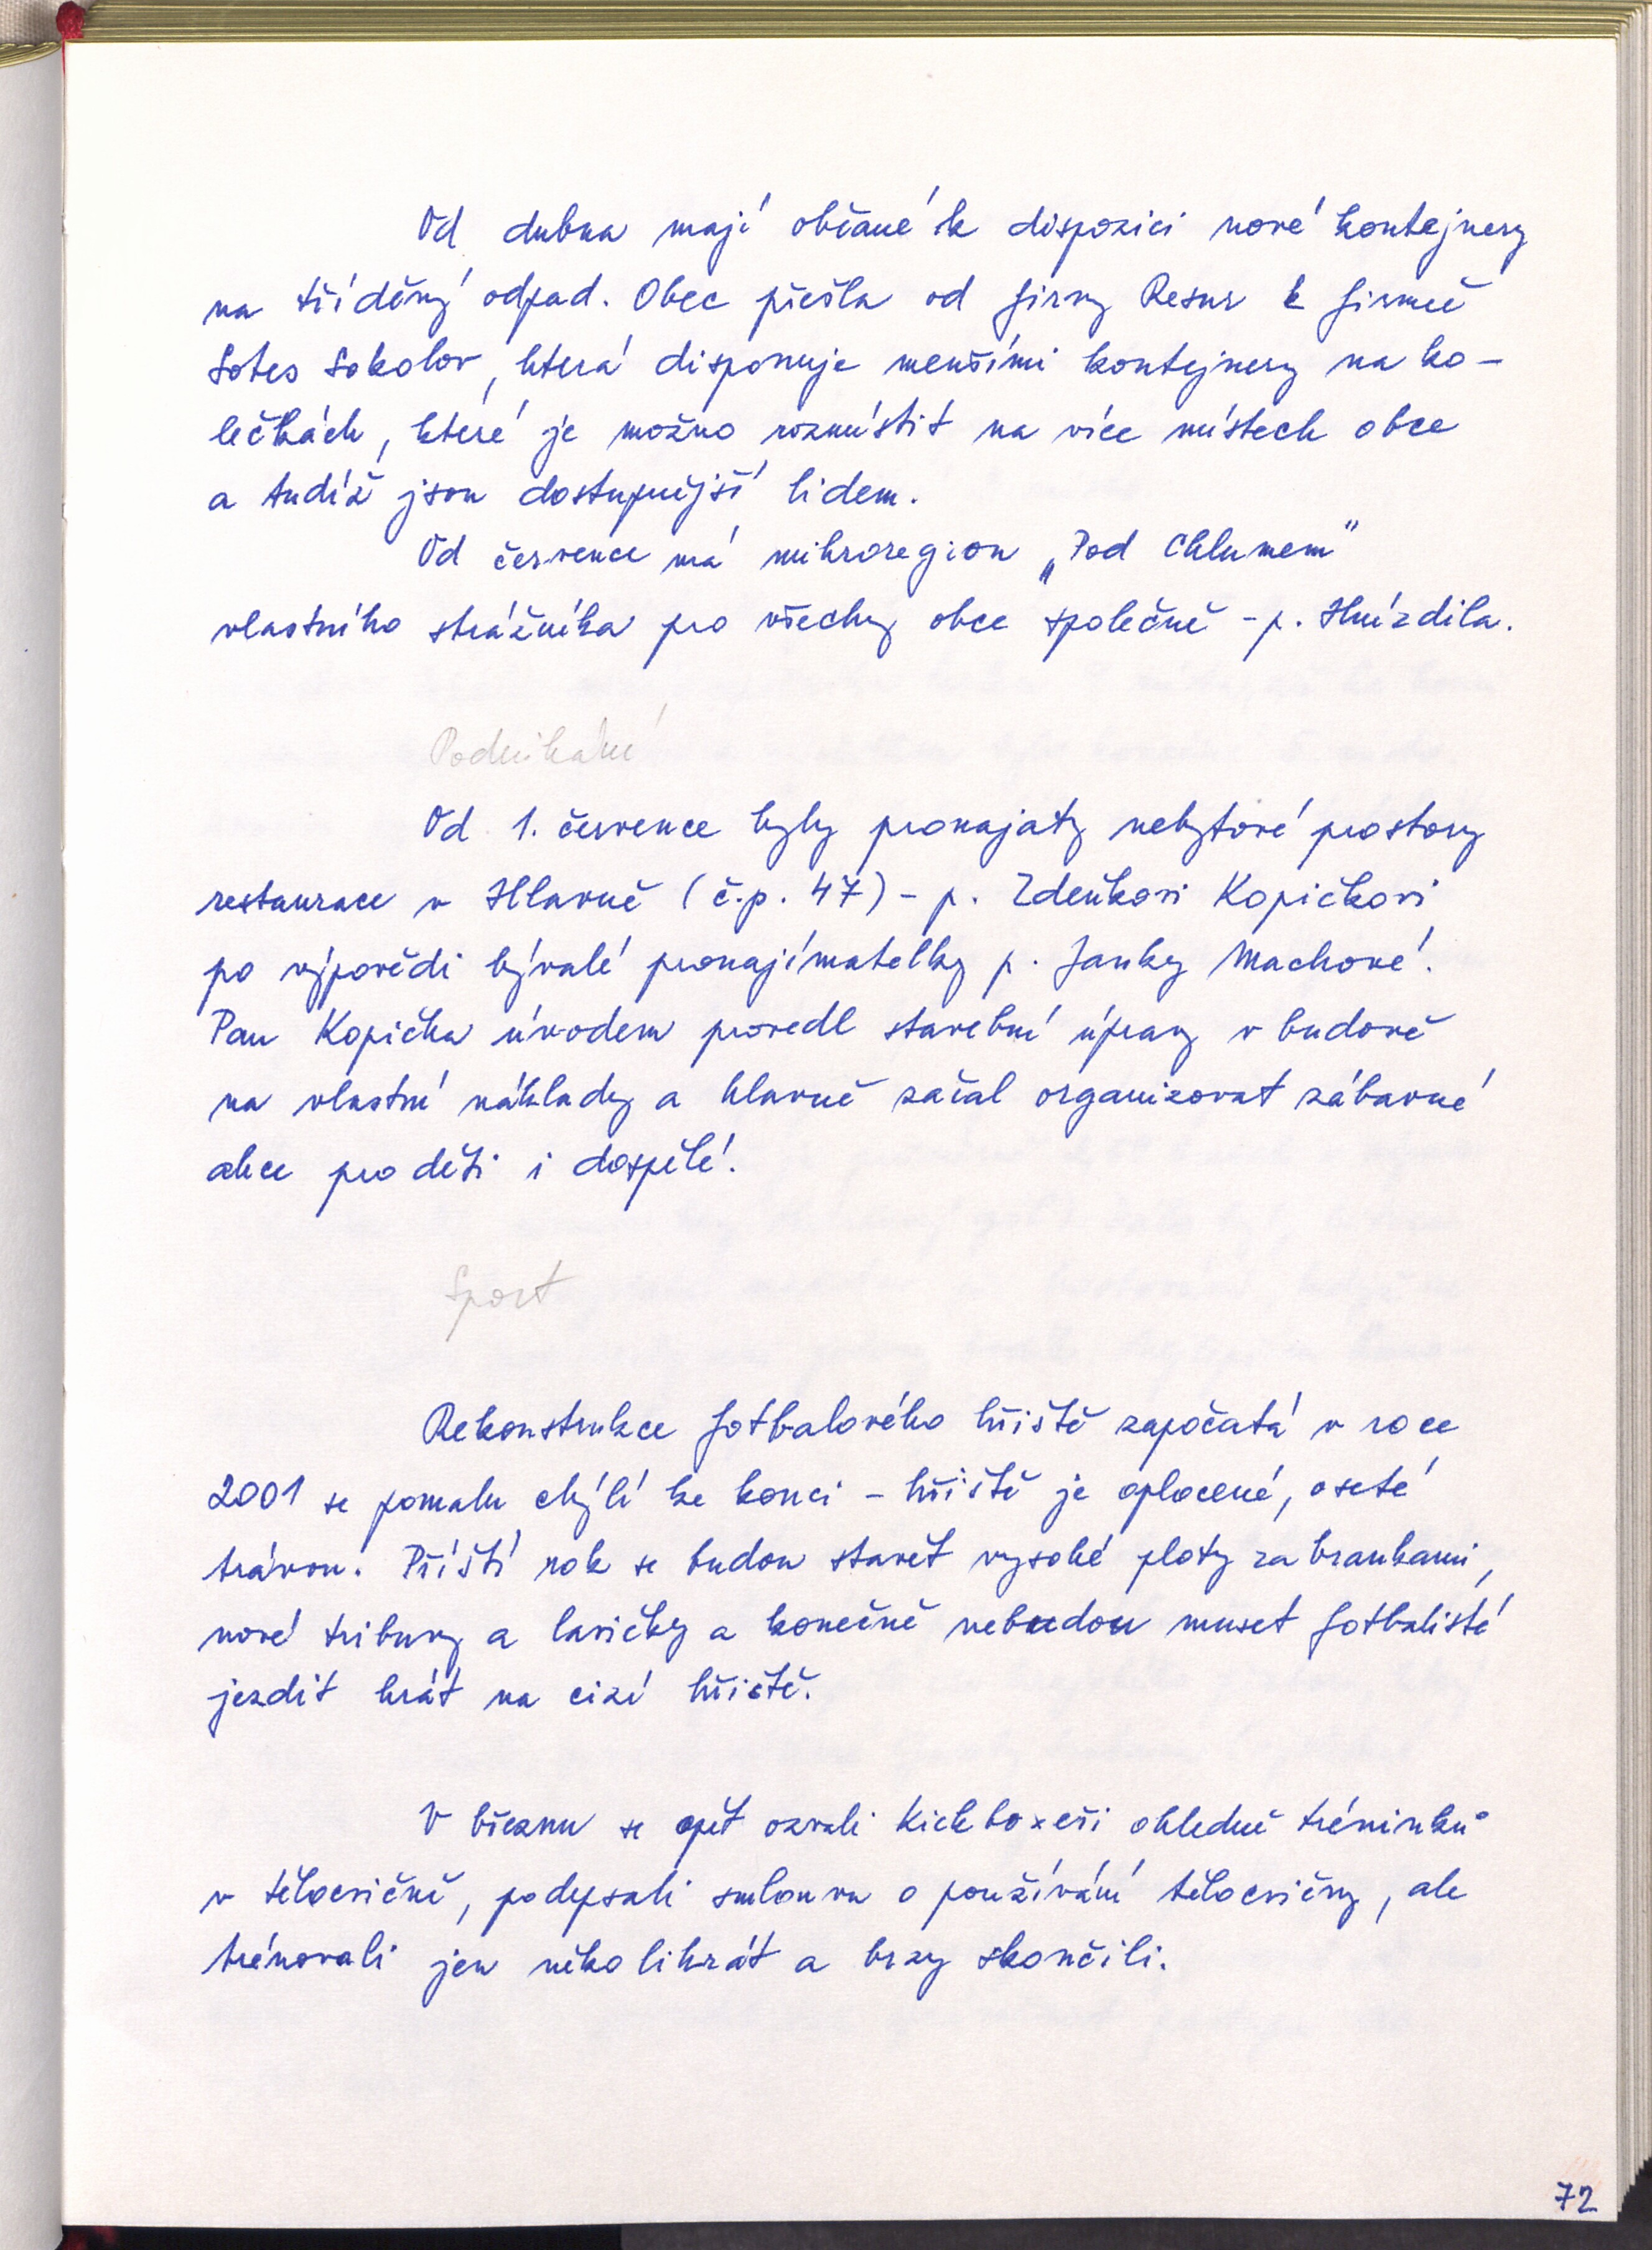 Od dubna mají občané k dispozici nové kontejnery
na tříděný odpad. Obec přešla od firmy Resur k firmě
Sotes Sokolov, která disponuje menšími kontejnery na ko-
lečkách, které je možno rozmístit na více místech obce
a tudíž jsou dostupnější lidem.
Od července má mikroregion „Pod Chlumem"
vlastního strážníka pro všechny obce společně - p. Hnízdila.
Podnikání
Od 1. července byly pronajaty nebytové prostory
restaurace v Hlavně (č.p. 47) - p. Zdeňkovi Kopičkovi
po výpovědi bývalé pronajímatelky p. Janky Machové.
Pan Kopička úvodem provedl stavební úpravy v budově
na vlastní náklady a hlavně začal organizovat zábavné
akce pro děti i dospělé.
Sport
Rekonstrukce fotbalového hřiště započatá v roce
2001 se pomalu chýlí ke konci - hřiště je oplocené, oseté
trávou. Příští rok se budou stavět vysoké ploty za brankami,
nové tribuny a lavičky a konečně nebudou muset fotbalisté
jezdit hrát na cizí hřiště.
V březnu se opět ozvali kickboxeři ohledně tréninků
v tělocvičně, podepsali smlouvu o používání tělocvičny, ale
trénovali jen několikrát a brzy skončili.
72